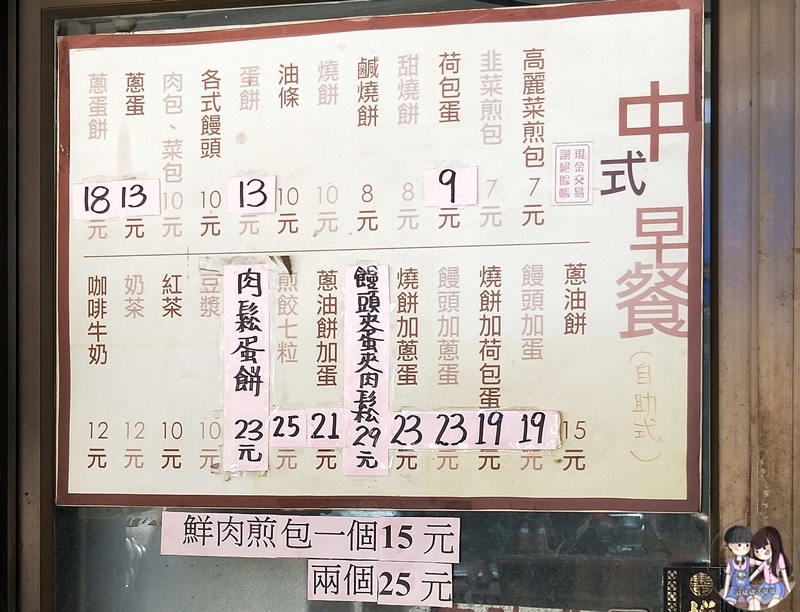 中式早餐
(自助式)
現金交易
謝絕賒帳
高麗菜煎包 7元
韭菜煎包 7元
荷包蛋 9元
甜燒餅 8元
鹹燒餅 8元
燒餅 10元
油條 10元
蛋餅 13元
各式饅頭 10元
肉包、菜包 10元
蔥蛋 13元
蔥蛋餅 18元
蔥油餅 15元
饅頭加蛋 19元
燒餅加荷包蛋 19元
饅頭加蔥蛋 23元
燒餅加蔥蛋 23元
饅頭夾蛋夾肉鬆 29元
蔥油餅加蛋 21元
煎餃七粒 25元
肉鬆蛋餅 23元
豆漿 10元
紅茶 10元
奶茶 12元
咖啡牛奶 12元
鮮肉煎包一個15元
兩個25元